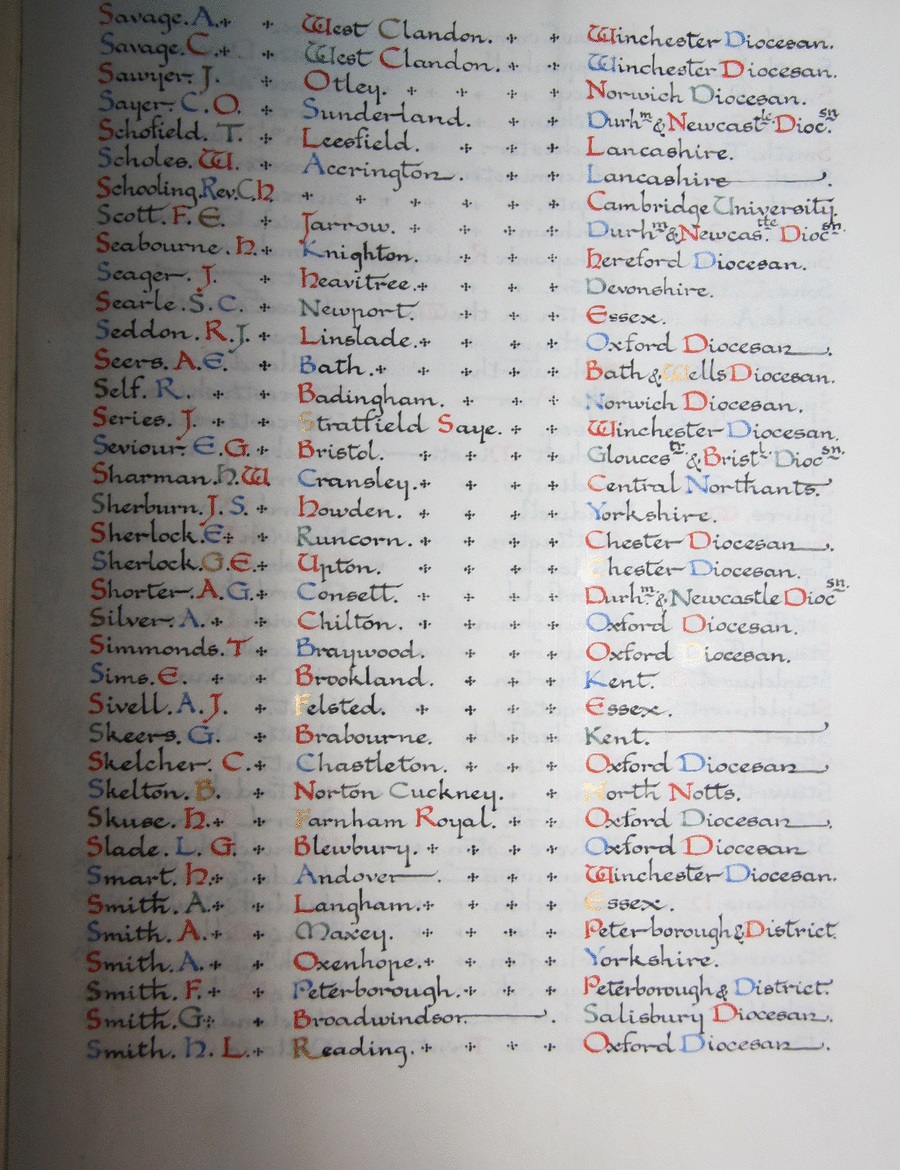 Savage. A. West Clandon. Winchester Diocesan.
Savage. C. West Clandon. Winchester Diocesan.
Sawyer. J. Otley. Norwich Diocesan.
Sayer. C. O. Sunderland. Durhm & Newcastle Diocsn.
Schofield. T. Leesfield. Lancashire.
Scholes. W. Accrington. Lancashire.
Schooling. Rev. C. H Cambridge University.
Scott. F. E. Jarrow. Durhm & Newcastle Diocsn.
Seabourne. H. Knighton. Hereford Diocesan.
Seager. J. Heavitree. Devonshire.
Searle. S. C. Newport. Essex.
Seddon. R. J. Linslade. Oxford Diocesan.
Seers. A. E. Bath. Bath & Wells Diocesan.
Self. R. Badingham. Norwich Diocesan.
Series. J. Stratfield Saye. Winchester Diocesan.
Seviour. E. G. Bristol. Gloucestr. & Bristl. Diocsn.
Sharman. H. W Cransley. Central Northants.
Sherburn. J. S. Howden. Yorkshire.
Sherlock. E. Runcorn. Chester Diocesan.
Sherlock. G. E. Upton. Chester Diocesan.
Shorter. A. G. Consett. Durhm. & Newcastle Diocsn.
Silver. A. Chilton. Oxford Diocesan.
Simmonds. T Braywood. Oxford Diocesan.
Sims. E. Brookland. Kent.
Sivell. A. J. Felsted. Essex.
Skeers. G. Brabourne. Kent.
Skelcher. C. Chastleton. Oxford Diocesan
Skelton. B. Norton Cuckney. North Notts.
Skuse. H. Farnham Royal. Oxford Diocesan.
Slade. L. G. Blewbury. Oxford Diocesan
Smart. H. Andover. Winchester Diocesan.
Smith. A. Langham. Essex.
Smith. A. Maxey. Peterborough & District.
Smith. A. Oxenhope. Yorkshire.
Smith. F. Peterborough. Peterborough & District.
Smith. G. Broadwindsor. Salisbury Diocesan.
Smith. H. L. Reading. Oxford Diocesan.